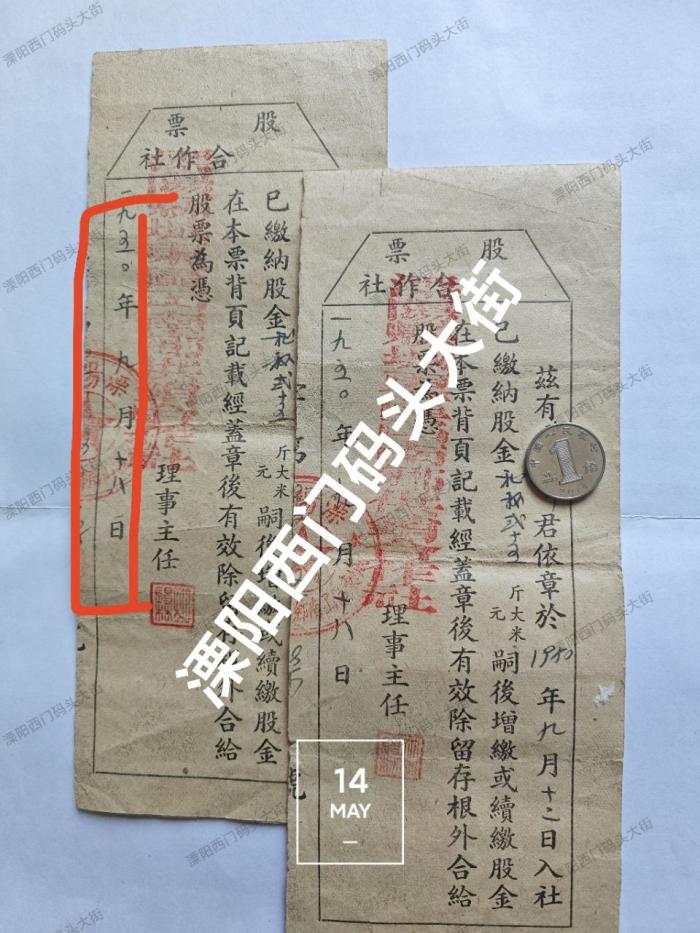 股票
合作社
已繳納股金
斤大米
元
嗣後增繳或續繳股金
在本票背頁記載經蓋章後有效除留存根外合給
股票為憑
理事主任
一九五〇年九月十八日
股票
合作社
茲有 君依章於1950年九月十二日入社
已繳納股金
斤大米
元
嗣後增繳或續繳股金
在本票背頁記載經蓋章後有效除留存根外合給
股票為憑
理事主任
一九五〇年九月十八日
溧阳西门码头大街
14
MAY
1
溧阳西门码头大街